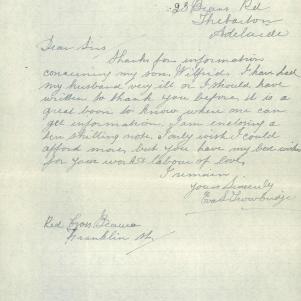 23 Evans Rd
Thebarton
Adelaide
Dear Sirs,
Thanks for information
concerning my son, Wilfrid. I have had
my husband very ill or I should have
written to thank you before, it is a
great boon to know where one can
get information. I am enclosing a
ten shilling note. I only wish I could
afford more, but you have my best wishes
for your work & labour of love,
I remain
Yours Sincerely
Eva Trowbridge
Red Cross
Franklin St.